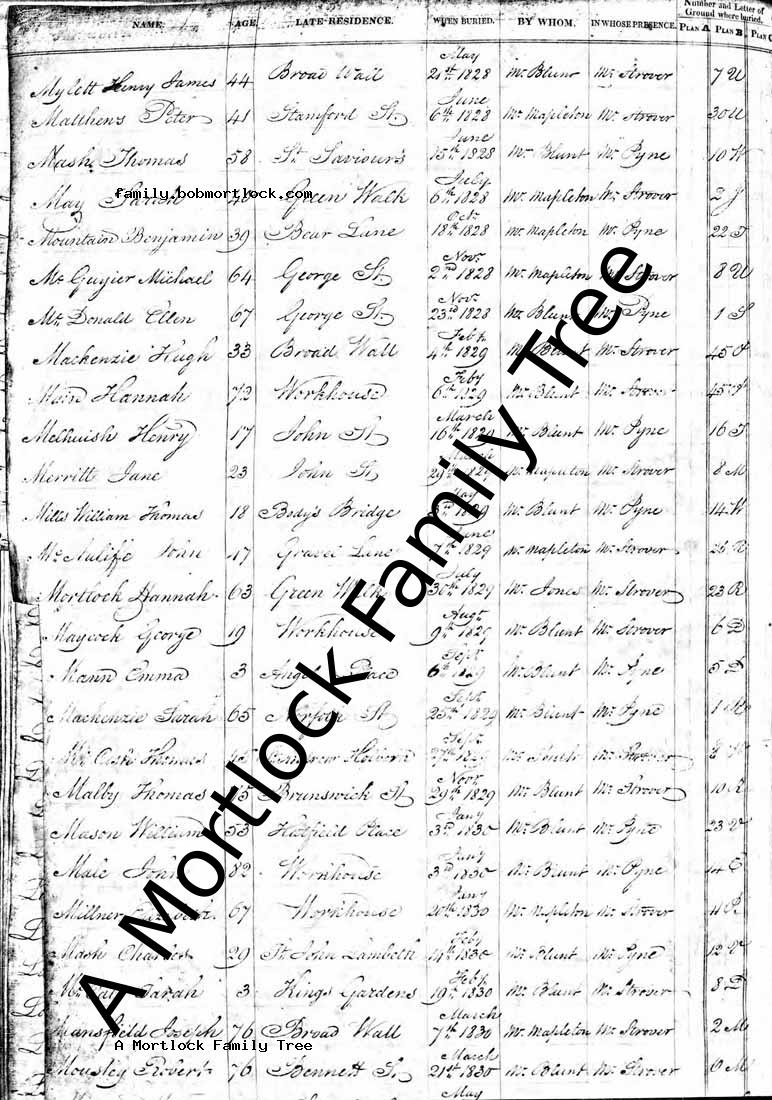 Number and Letter of
Ground where buried.
NAME. AGE. LATE RESIDENCE. WHEN BURIED. BY WHOM, IN WHOSE PRESENCE. PLAN A PLAN B PLAN C
May
Mylett Henry James 44 Broad Wall 21st 1828 Mr Blunt Mr Strover 7 U
June
Matthews Peter 41 Stamford St. 6th 1828 Mr Mapleton Mr Strover 30 U
June
Mash Thomas 58 St Saviour's 15th 1828 Mr Blunt Mr Pyne 10 W
July
May Sarah 40 Green Walk 6th 1828 Mr Mapleton Mr Strover 2
family.bobmortlock.com
Octr
Mountain Benjamin 39 Bear Lane 18th 1828 Mr Mapleton Mr Pyne 22
Novr
Mc Guyier Michael 64 George St. 2nd 1828 Mr Mapleton Mr Strover 8 U
Novr
Mc Donald Ellen 67 George St. 23rd 1828 Mr Blunt Mr Pyne 1
Feby
Mackenzie Hugh 33 Broad Wall 4th 1829 Mr Blunt Mr Strover 45
Feby
Main Hannah 72 Workhouse 6th 1829 Mr Blunt Mr Strover 45
March
Melhuish Henry 17 John St 16th 1829 Mr Blunt Mr Pyne 16
March
Merritt Jane 23 John St 29th 1829 Mr Mapleton Mr Strover 8 M
May
Mills William Thomas 18 Body's Bridge 1829 Mr Blunt Mr Pyne 14 W
June
Mc Aulife John 17 Gravel Lane 7th 1829 Mr Mapleton Mr Strover 25 R
July
Mortlock Hannah 63 Green Walk 30th 1829 Mr Jones Mr Strover 23 R
Augt
Maycock George 19 Workhouse 9th 1829 Mr Blunt Mr Strover 6 D
Sepr
Mann Emma 3 Angel Place 6th 1829 Mr Blunt Mr Pyne 5 D
Sepr
Mackenzie Sarah 65 Norfolk St 25th 1829 Mr Blunt Mr Pyne 1 M
Sepr
Thomas 45 Holborn 27th 1829 Mr Mr Strover 8
Novr
Malby Thomas 45 Brunswick St 29th 1829 Mr Blunt Mr Strover 10 R
Jany
Mason William 53 Hatfield Place 3rd 1830 Mr Blunt Mr Pyne 23 V
Jany
Male John 82 Workhouse 3rd 1830 Mr Blunt Mr Pyne 44
Jany
Millner Elizabeth 67 Workhouse 20th 1830 Mr Mapleton Mr Strover 41 R
Feby
Mark Charles 29 St John Lambeth 14th 1830 Mr Blunt Mr Pyne 12 V
Feby
Sarah 3 Kings Gardens 19th 1830 Mr Blunt Mr Strover 8 D
March
Mansfield Joseph 76 Broad Wall 7th 1830 Mr Mapleton Mr Strover 2 M
A Mortlock Family Tree
March
Mousley Robert 76 Bennett St. 21st 1830 Mr Blunt Mr Strover 6 M
May
A Mortlock Family Tree